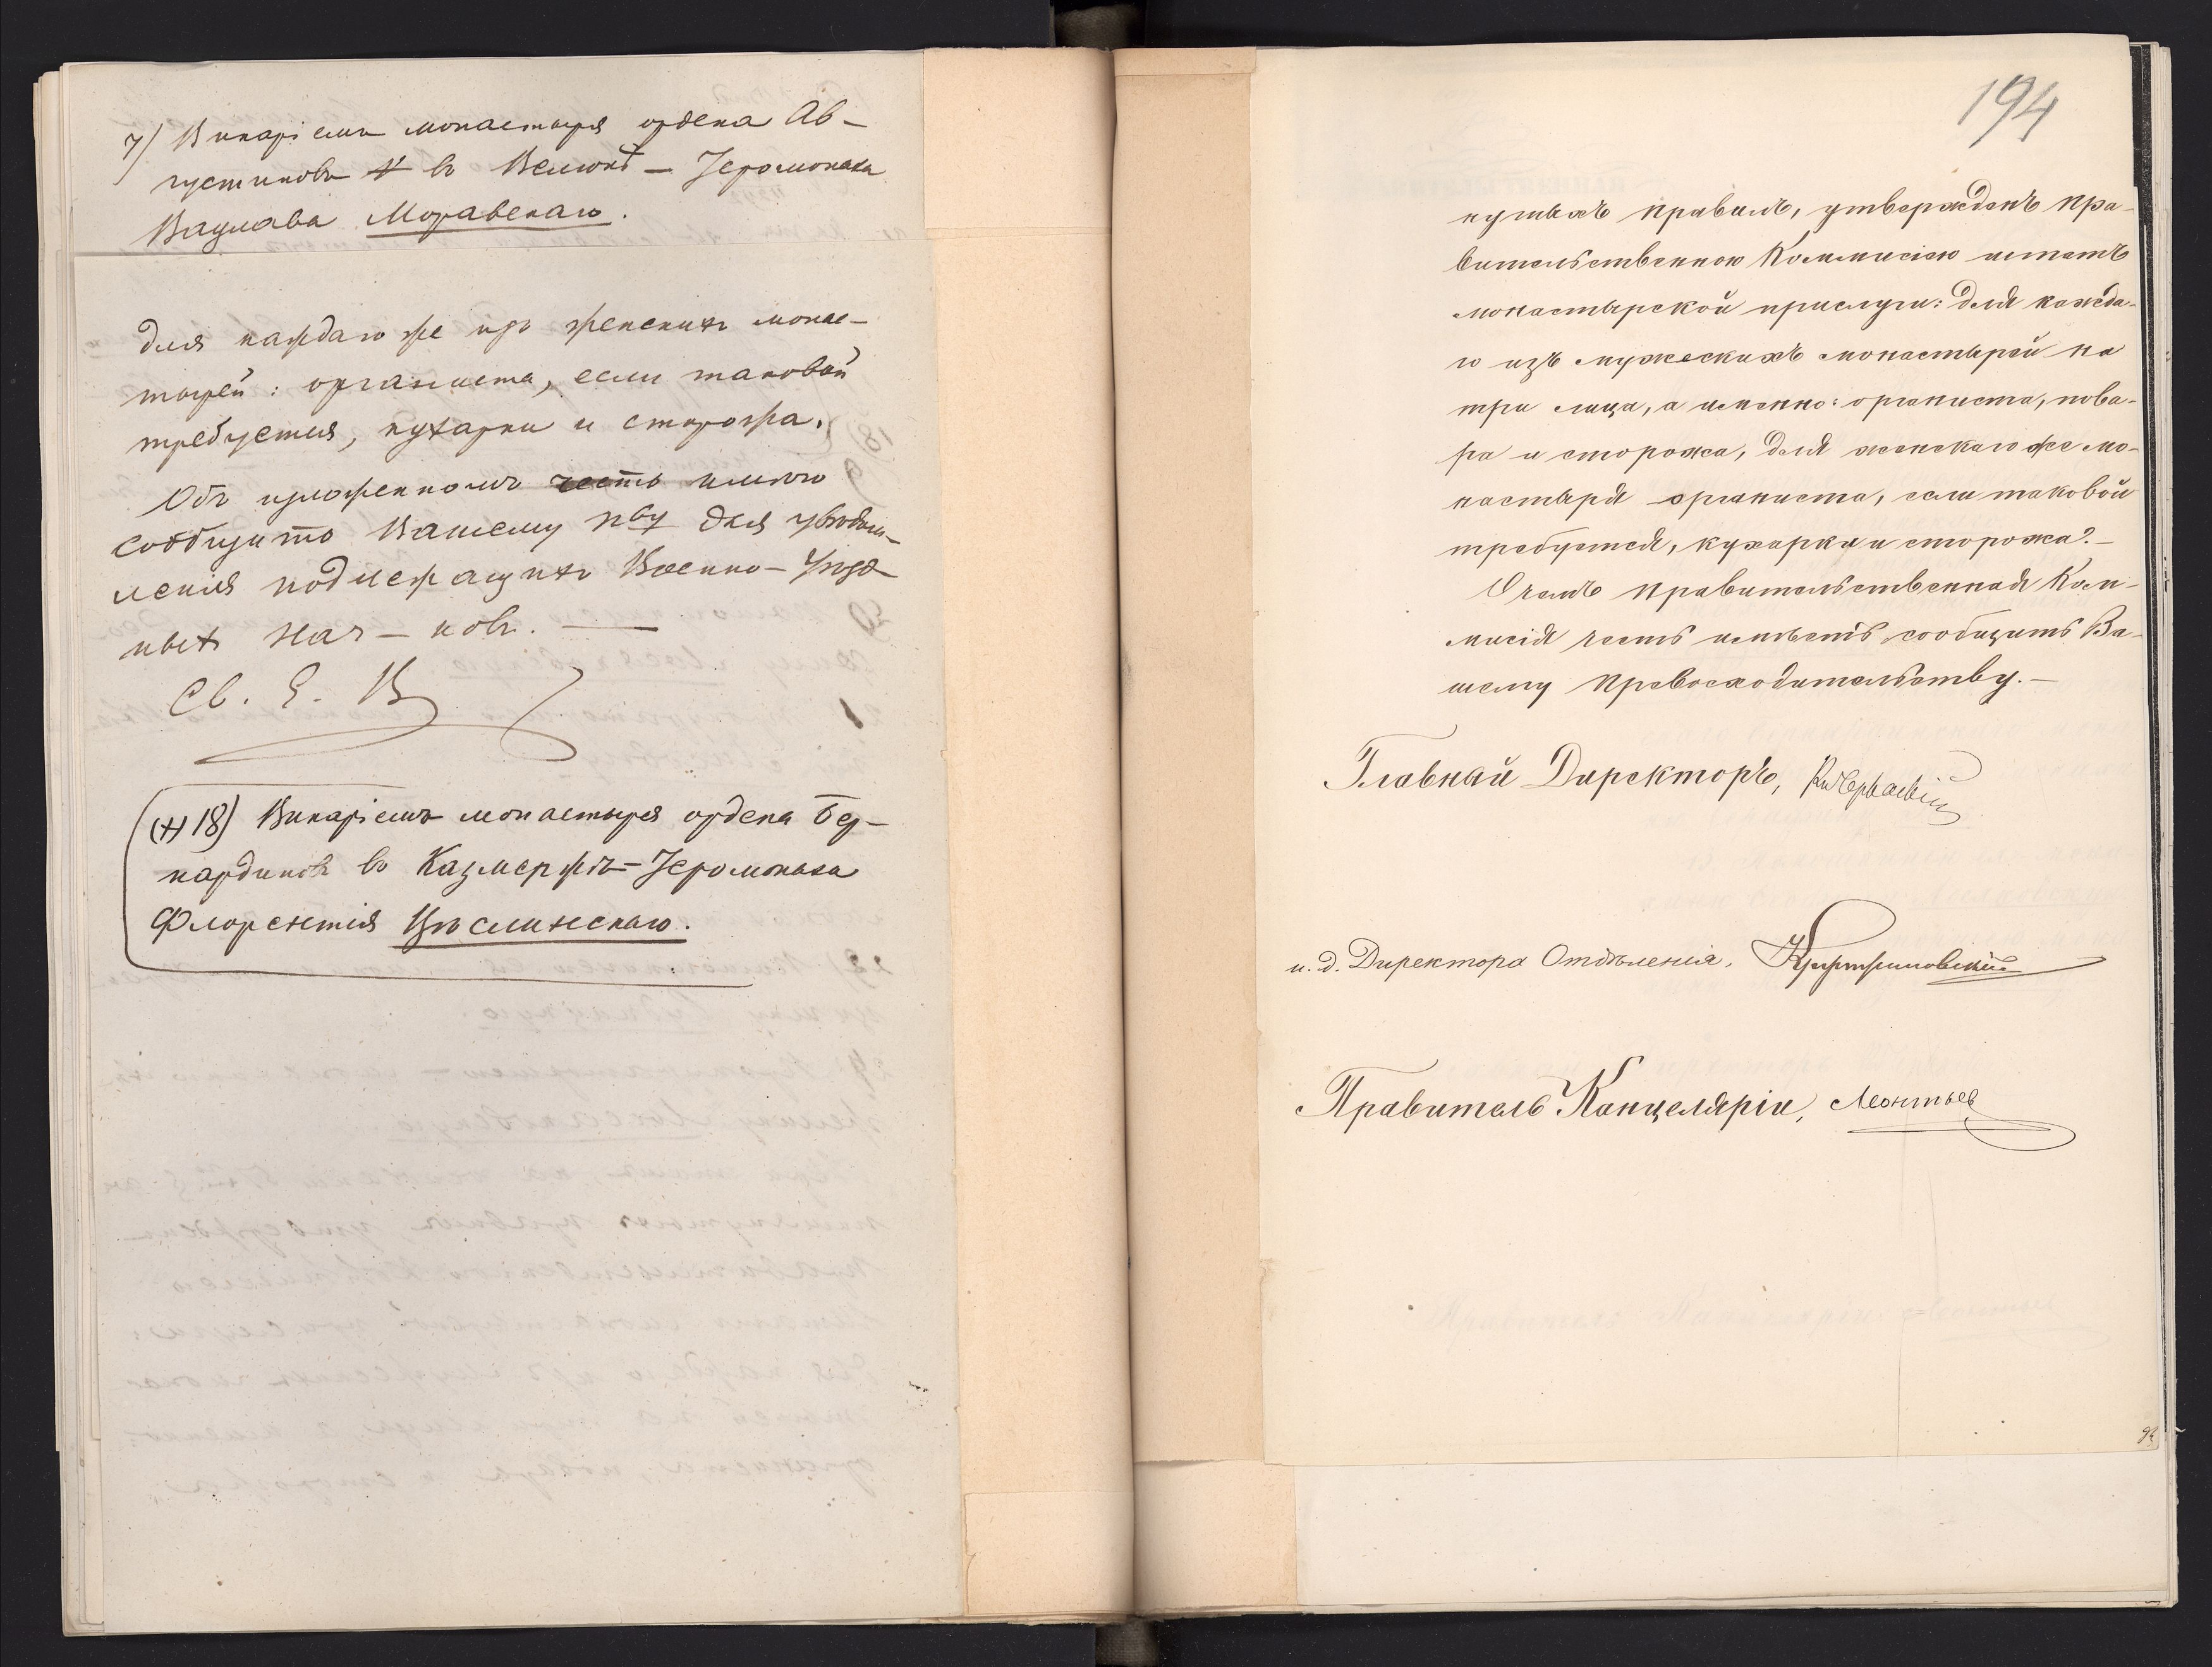 7) Викаріемъ монастыря ордена Ав-
густиновъ въ Велюнѣ - Іеромонаха
Вацлава Моравскаго.
для каждаго же изъ женскихъ монас-
тырей: органиста, если таковой
требуется, кухарки и сторожа.
Объ изложенномъ честь имѣю
сообщить Вашему пву для увѣдом-
ленія подлежащихъ Военно-Уѣзд-
ныхъ Нач-ковъ. —
Св. Е. В
(+) 18) Викаріемъ монастыря ордена Бер-
нардиновъ въ Казмержѣ - Іеромонаха
Флорентія Цѣслинскаго.
194
нутыхъ правилъ, утвержденъ Пра-
вительственною Коммисіею штатъ
монастырской прислуги: для каждо-
го изъ мужескихъ монастырей на
три лица, а именно: органиста, пова-
ра и сторожа, для женскаго же мо-
настыря органиста, если таковой
требуется, кухарки и сторожа. —
О чемъ Правительственная Ком-
мисія честь имѣетъ сообщить Ва-
шему Превосходительству. —
Главный Директоръ,
и. д. Директора Отдѣленія,
Правитель Канцеляріи, Леонтьев